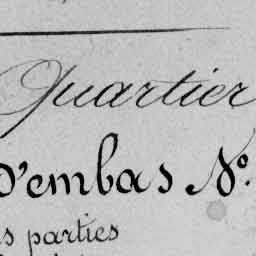 Quartier
d'embas No.
s parties